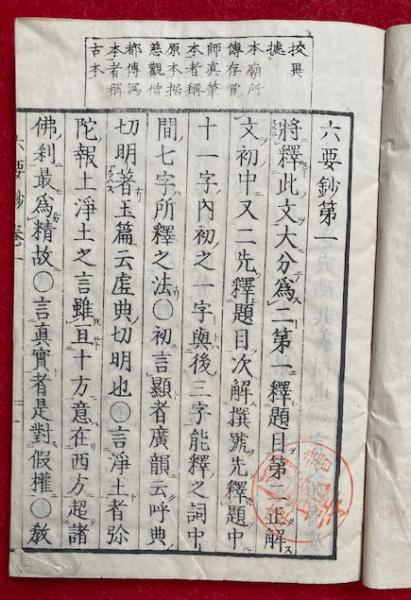 挍異
據
本廟所
傳存覺
師真筆
本者稱
原本據
慈觀僧
都傳寫
本者稱
古本
六要鈔第一
將釋此文大分爲二第一釋題目第二正解
文初中又二先釋題目次解撰號先釋題中
十一字內初之一字與後三字能釋之詞中
間七字所釋之法〇初言顯者廣韻云呼典
切明著玉篇云虛典切明也〇言淨土者弥
陀報土淨土之言雖亘十方意在西方超諸
佛刹最爲精故〇言真實者是對假權〇敎
六要鈔 卷一